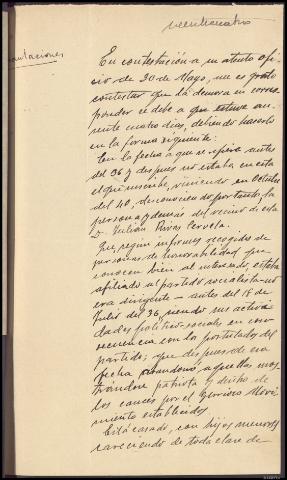 veinticuatro
En contestación a su atento ofi-
cio de 20 de Mayo, me es grato
contestar que la demora en corres-
ponder es debe a que estuve au-
sente cuatro dias, debiendo hacerlo
en la forma siguiente:
En la fecha a que se refiere antes
del 36 y despues no estaba en esta
el que suscribe, viniendo en Octubre
del 40, desconociendo por tanto, la
persona y demas del vecino de esta
D. Julian Rivas Cervela.
Que, según informes recogidos de
personas de honorabilidad que
conocen bien al interesado, estaba
afiliado al partido socialista - no
era dirigente - antes del 18 de
Julio del 36, siendo sus activi-
dades politico-sociales en con-
secuencia con los postulados del
partido; que despues de esa
fecha abandonó aquellas mos-
trándose patriota y dentro de
los cauces por el Glorioso Movi-
miento establecidos
Está casado, con hijos menores
careciendo de toda clase de